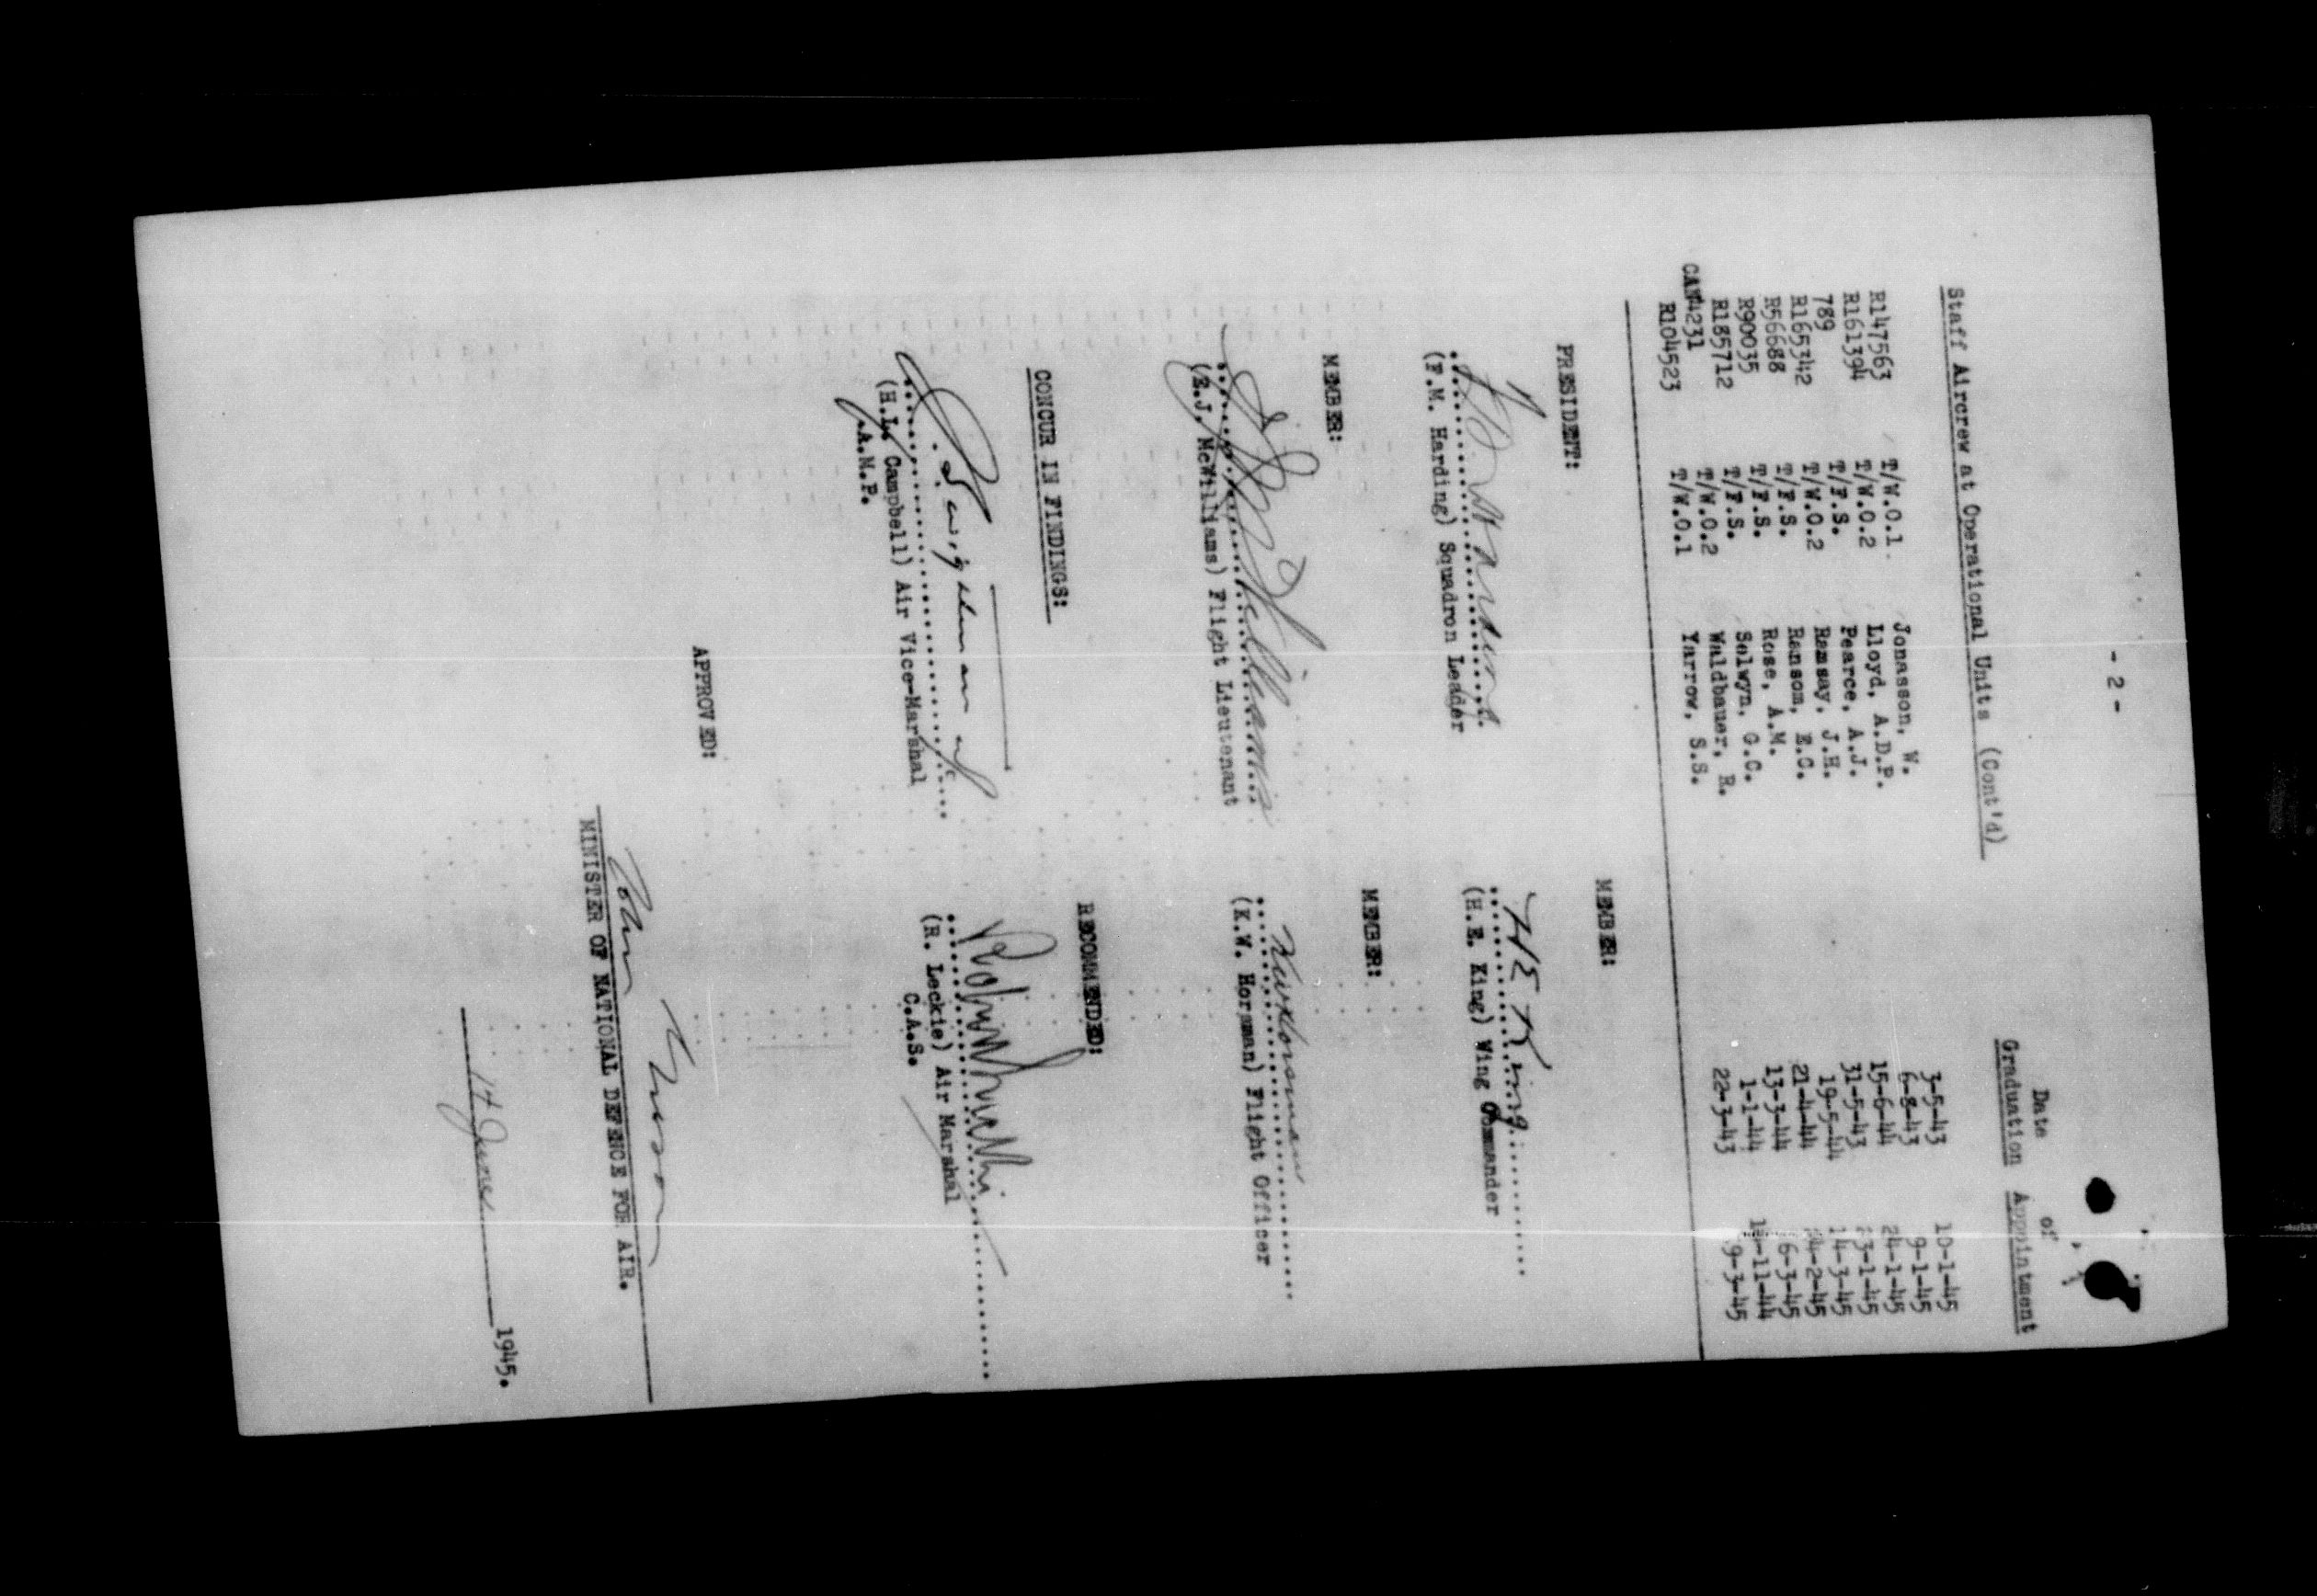 - 2 -
Date of
Staff Aircrew at Operational Units (Cont'd) Graduation Appointment
R147563 T/W.O.1 Jonasson, W. 3-5-43 10-1-45
R161394 T/W.O.2 Lloyd, A.D.P. 6-8-43 9-1-45
789 T/F.S. Pearce, A.J. 15-6-44 24-1-45
R165342 T/W.O.2 Ramsay, J.H. 31-5-43 23-1-45
R56688 T/F.S. Ransom, E.C. 19-5-44 14-3-45
R90035 T/F.S. Rose, A.M. 21-4-44 24-2-45
R185712 T/F.S. Selwyn, G.C. 13-3-44 6-3-45
CAN4231 T/W.O.2 Waldbauer, R. 1-1-44
R104523 T/W.O.1 Yarrow, S.S. 22-3-43 9-3-45
PRESIDENT: MEMBER:
H E King
(F.M. Harding) Squadron Leader (H.E. King) Wing Commander
MEMBER: MEMBER:
E J McWilliams KW Horsman
(E.J. McWilliams) Flight Lieutenant (K.W. Horsman) Flight Officer
CONCUR IN FINDINGS: RECOMMENDED:
(H.L. Campbell) Air Vice-Marshal (R. Leckie) Air Marshal
A.M.P. C.A.S.
APPROVED:
MINISTER OF NATIONAL DEFENCE FOR AIR.
14 June 1945.